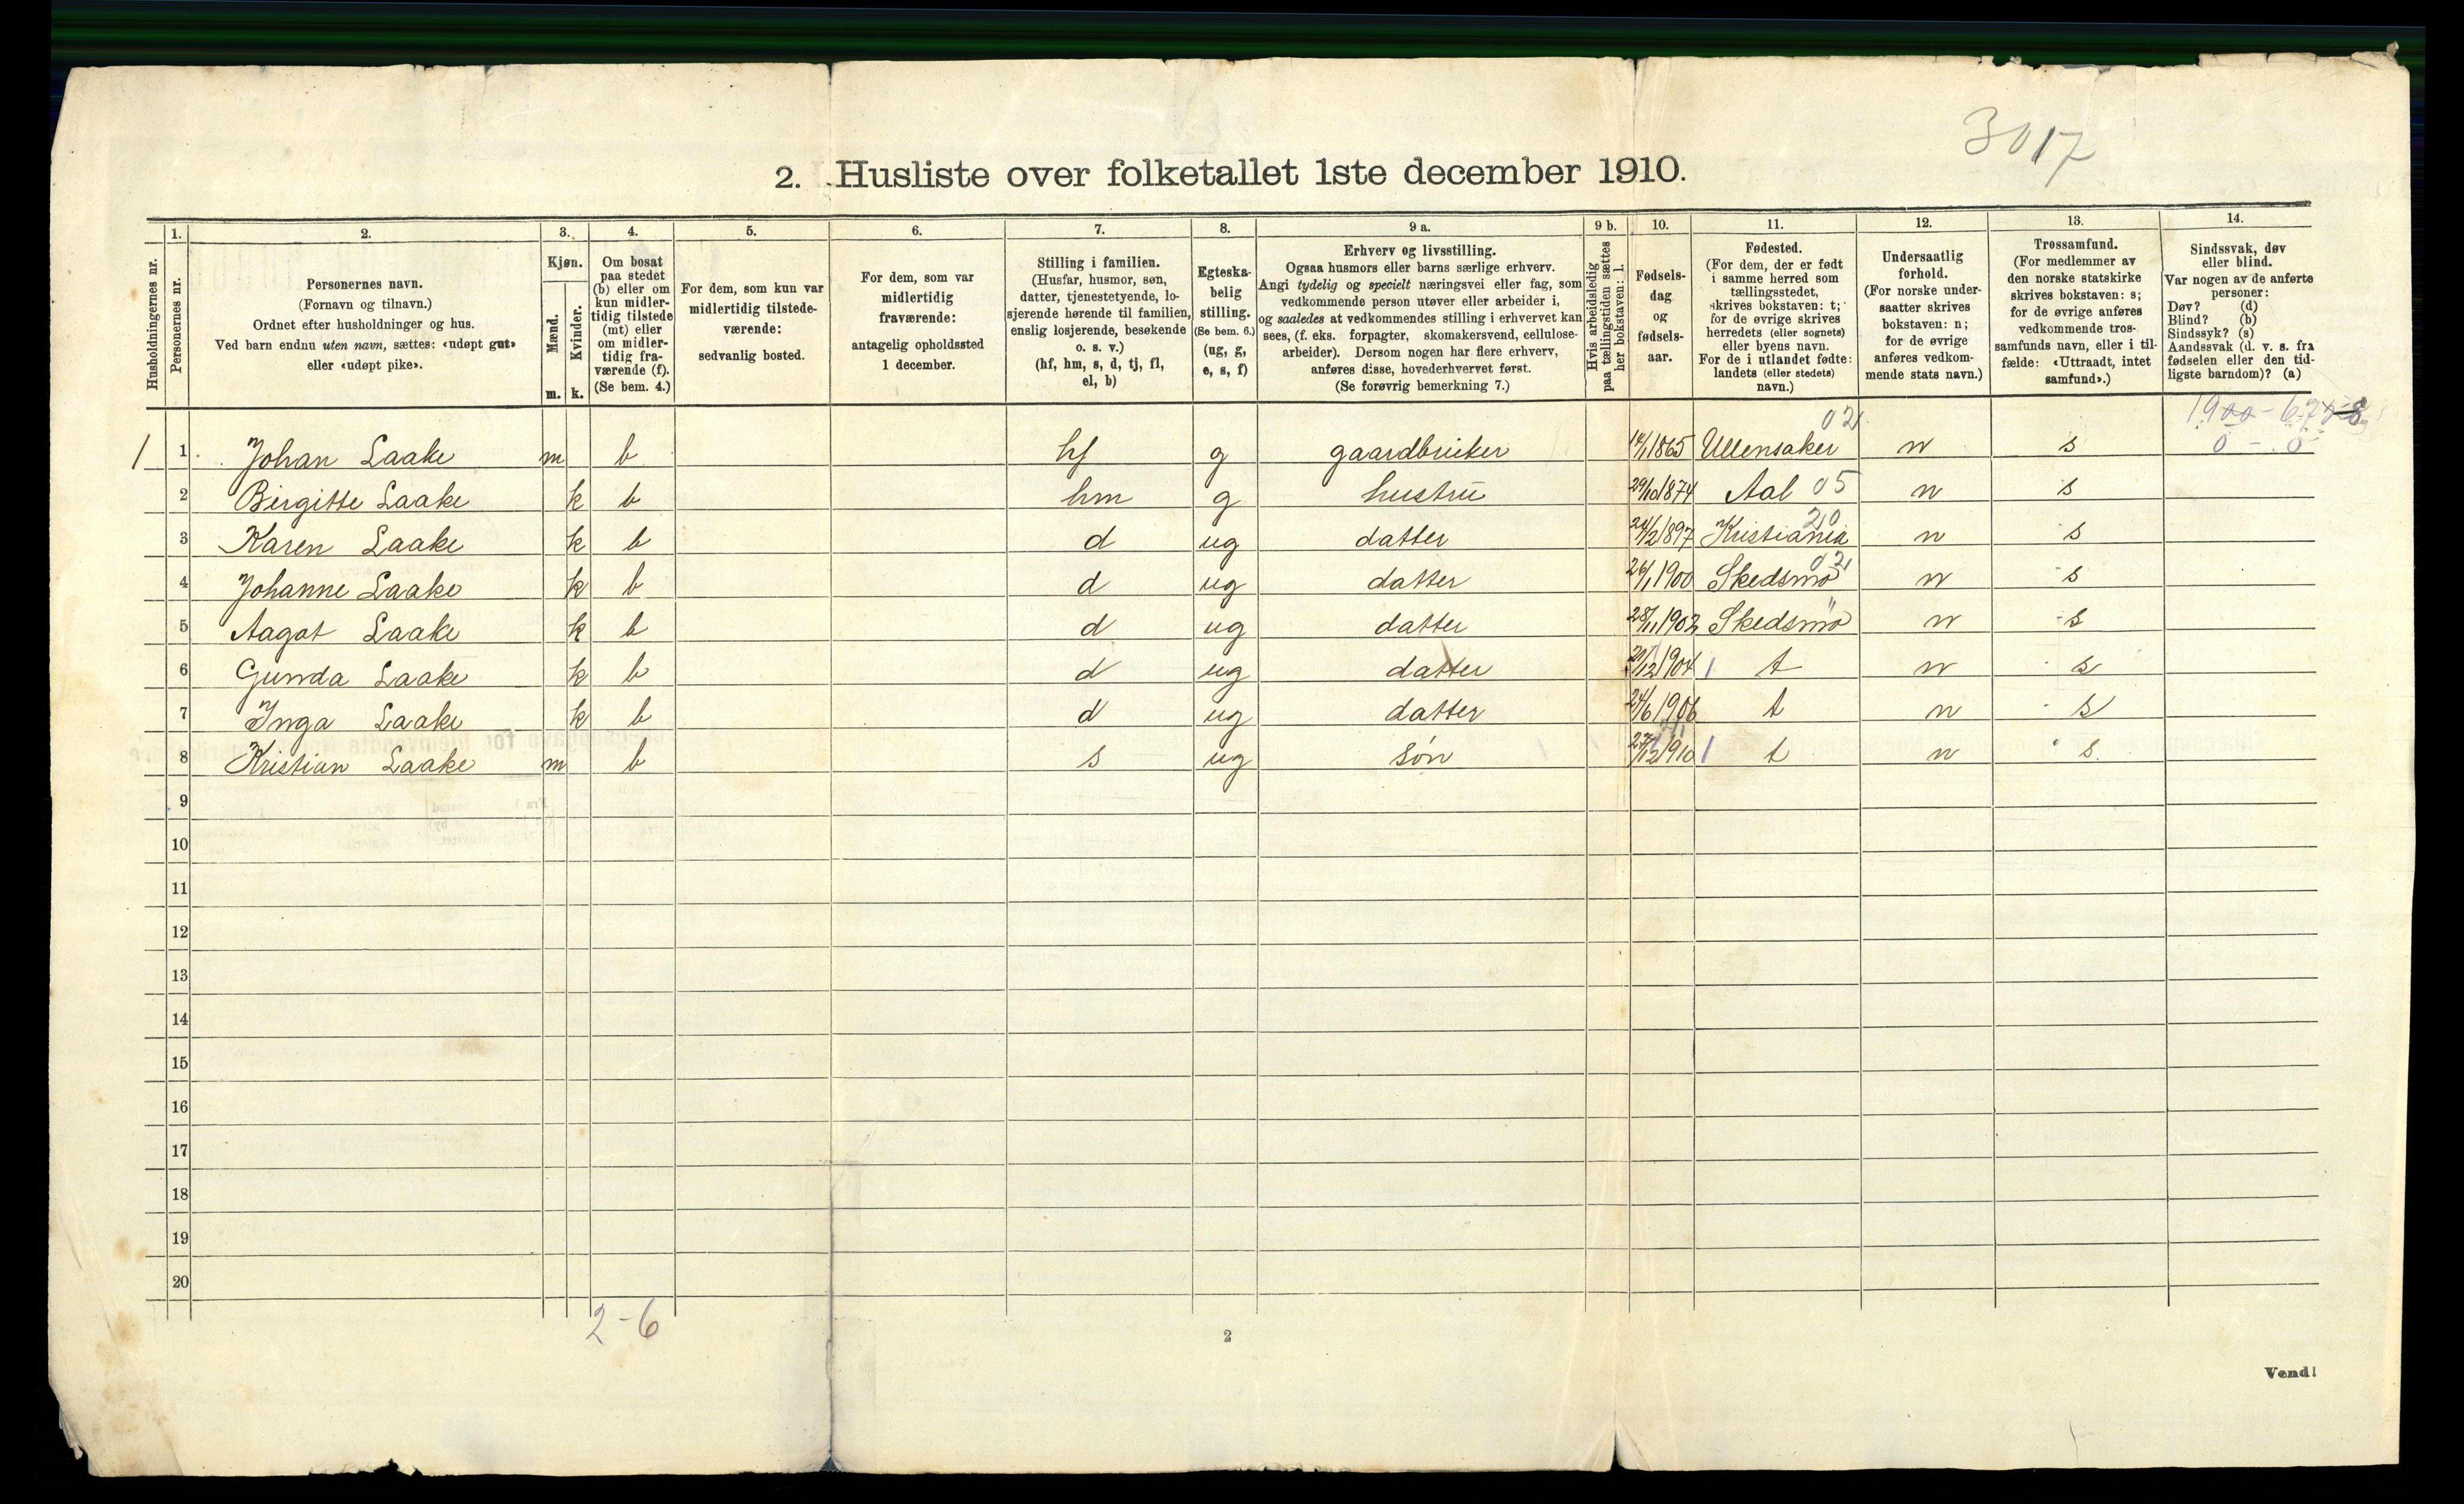 3017
2. Husliste over folketallet 1ste december 1910.
Husholdningernes nr.
1. Personernes nr.
2. Personernes navn. (Fornavn og tilnavn.) Ordnet efter husholdninger og hus. Ved barn endnu uten navn, sættes: «udøpt gut» eller «udøpt pike».
3. Kjøn. Mænd. m. Kvinder. k.
4. Om bosat paa stedet (b) eller om kun midlertidig tilstede (mt) eller om midlertidig fraværende (f). (Se bem. 4.)
5. For dem, som kun var midlertidig tilstedeværende: sedvanlig bosted.
6. For dem, som var midlertidig fraværende: antagelig opholdssted 1 december.
7. Stilling i familien. (Husfar, husmor, søn, datter, tjenestetyende, losjerende hørende til familien, enslig losjerende, besøkende o. s. v.) (hf, hm, s, d, tj, fl, el, b)
8. Egteskabelig stilling. (Se bem. 6.) (ug, g, e, s, f)
9 a. Erhverv og livsstilling. Ogsaa husmors eller barns særlige erhverv. Angi tydelig og specielt næringsvei eller fag, som vedkommende person utøver eller arbeider i, og saaledes at vedkommendes stilling i erhvervet kan sees, (f. eks. forpagter, skomakersvend, cellulosearbeider). Dersom nogen har flere erhverv, anføres disse, hovederhvervet først. (Se forøvrig bemerkning 7.)
9 b. Hvis arbeidsledig paa tællingstiden sættes her bokstaven: l.
10. Fødselsdag og fødselsaar.
11. Fødested. (For dem, der er født i samme herred som tællingsstedet, skrives bokstaven: t; for de øvrige skrives herredets (eller sognets) eller byens navn. For de i utlandet fødte: landets (eller stedets) navn.)
12. Undersaatlig forhold. (For norske undersaatter skrives bokstaven: n; for de øvrige anføres vedkommende stats navn.)
13. Trossamfund. (For medlemmer av den norske statskirke skrives bokstaven: s; for de øvrige anføres vedkommende trossamfunds navn, eller i tilfælde: «Uttraadt, intet samfund».)
14. Sindssvak, døv eller blind. Var nogen av de anførte personer: Døv? (d) Blind? (b) Sindssyk? (s) Aandssvak (d. v. s. fra fødselen eller den tidligste barndom)? (a)
02
1 1 Johan Laake m b hf g gaardbruker 14/1 1865 Ullensaker n s 0 - 0
2 Birgitte Laake k b hm g hustru 29/10 1874 Aal 05 n s
20
3 Karen Laake k b d ug datter 24/2 1897 Kristiania n s
02
4 Johanne Laake k b d ug datter 26/1 1900 Skedsmo n s
"
5 Aagot Laake k b d ug datter 28/11 1902 Skedsmo n s
6 Gunda Laake k b d ug datter /12 1904 1 t n s
7 Inga Laake k b d ug datter 24/6 1906 t n s
8 Kristian Laake m b s ug søn 27/12 1910 1 t n s
9
10
11
12
13
14
15
16
17
18
19
20
2-6
2
Vend!